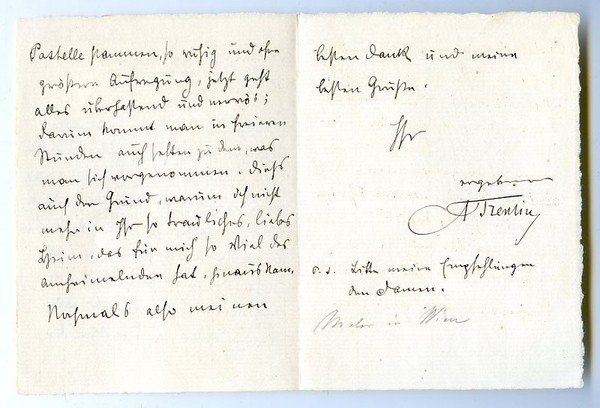 Pastelle stammen, so ruhig und ohne
größere Aufregung, jetzt geht
alles überhastend und nervös;
darum kommt man in freieren
Stunden auch selten zu dem, was
man sich vorgenommen. Dies
auch der Grund, warum ich nicht
mehr in Ihr so trauliches, liebes
Heim, das für mich so viel des
anheimelnden hat, hinauskam.
Nochmals also meinen
besten Dank und meine
besten Grüße.
Ihr
ergebener
A Trentin
P. S. Bitte meine Empfehlungen
den Damen.
Maler in Wien